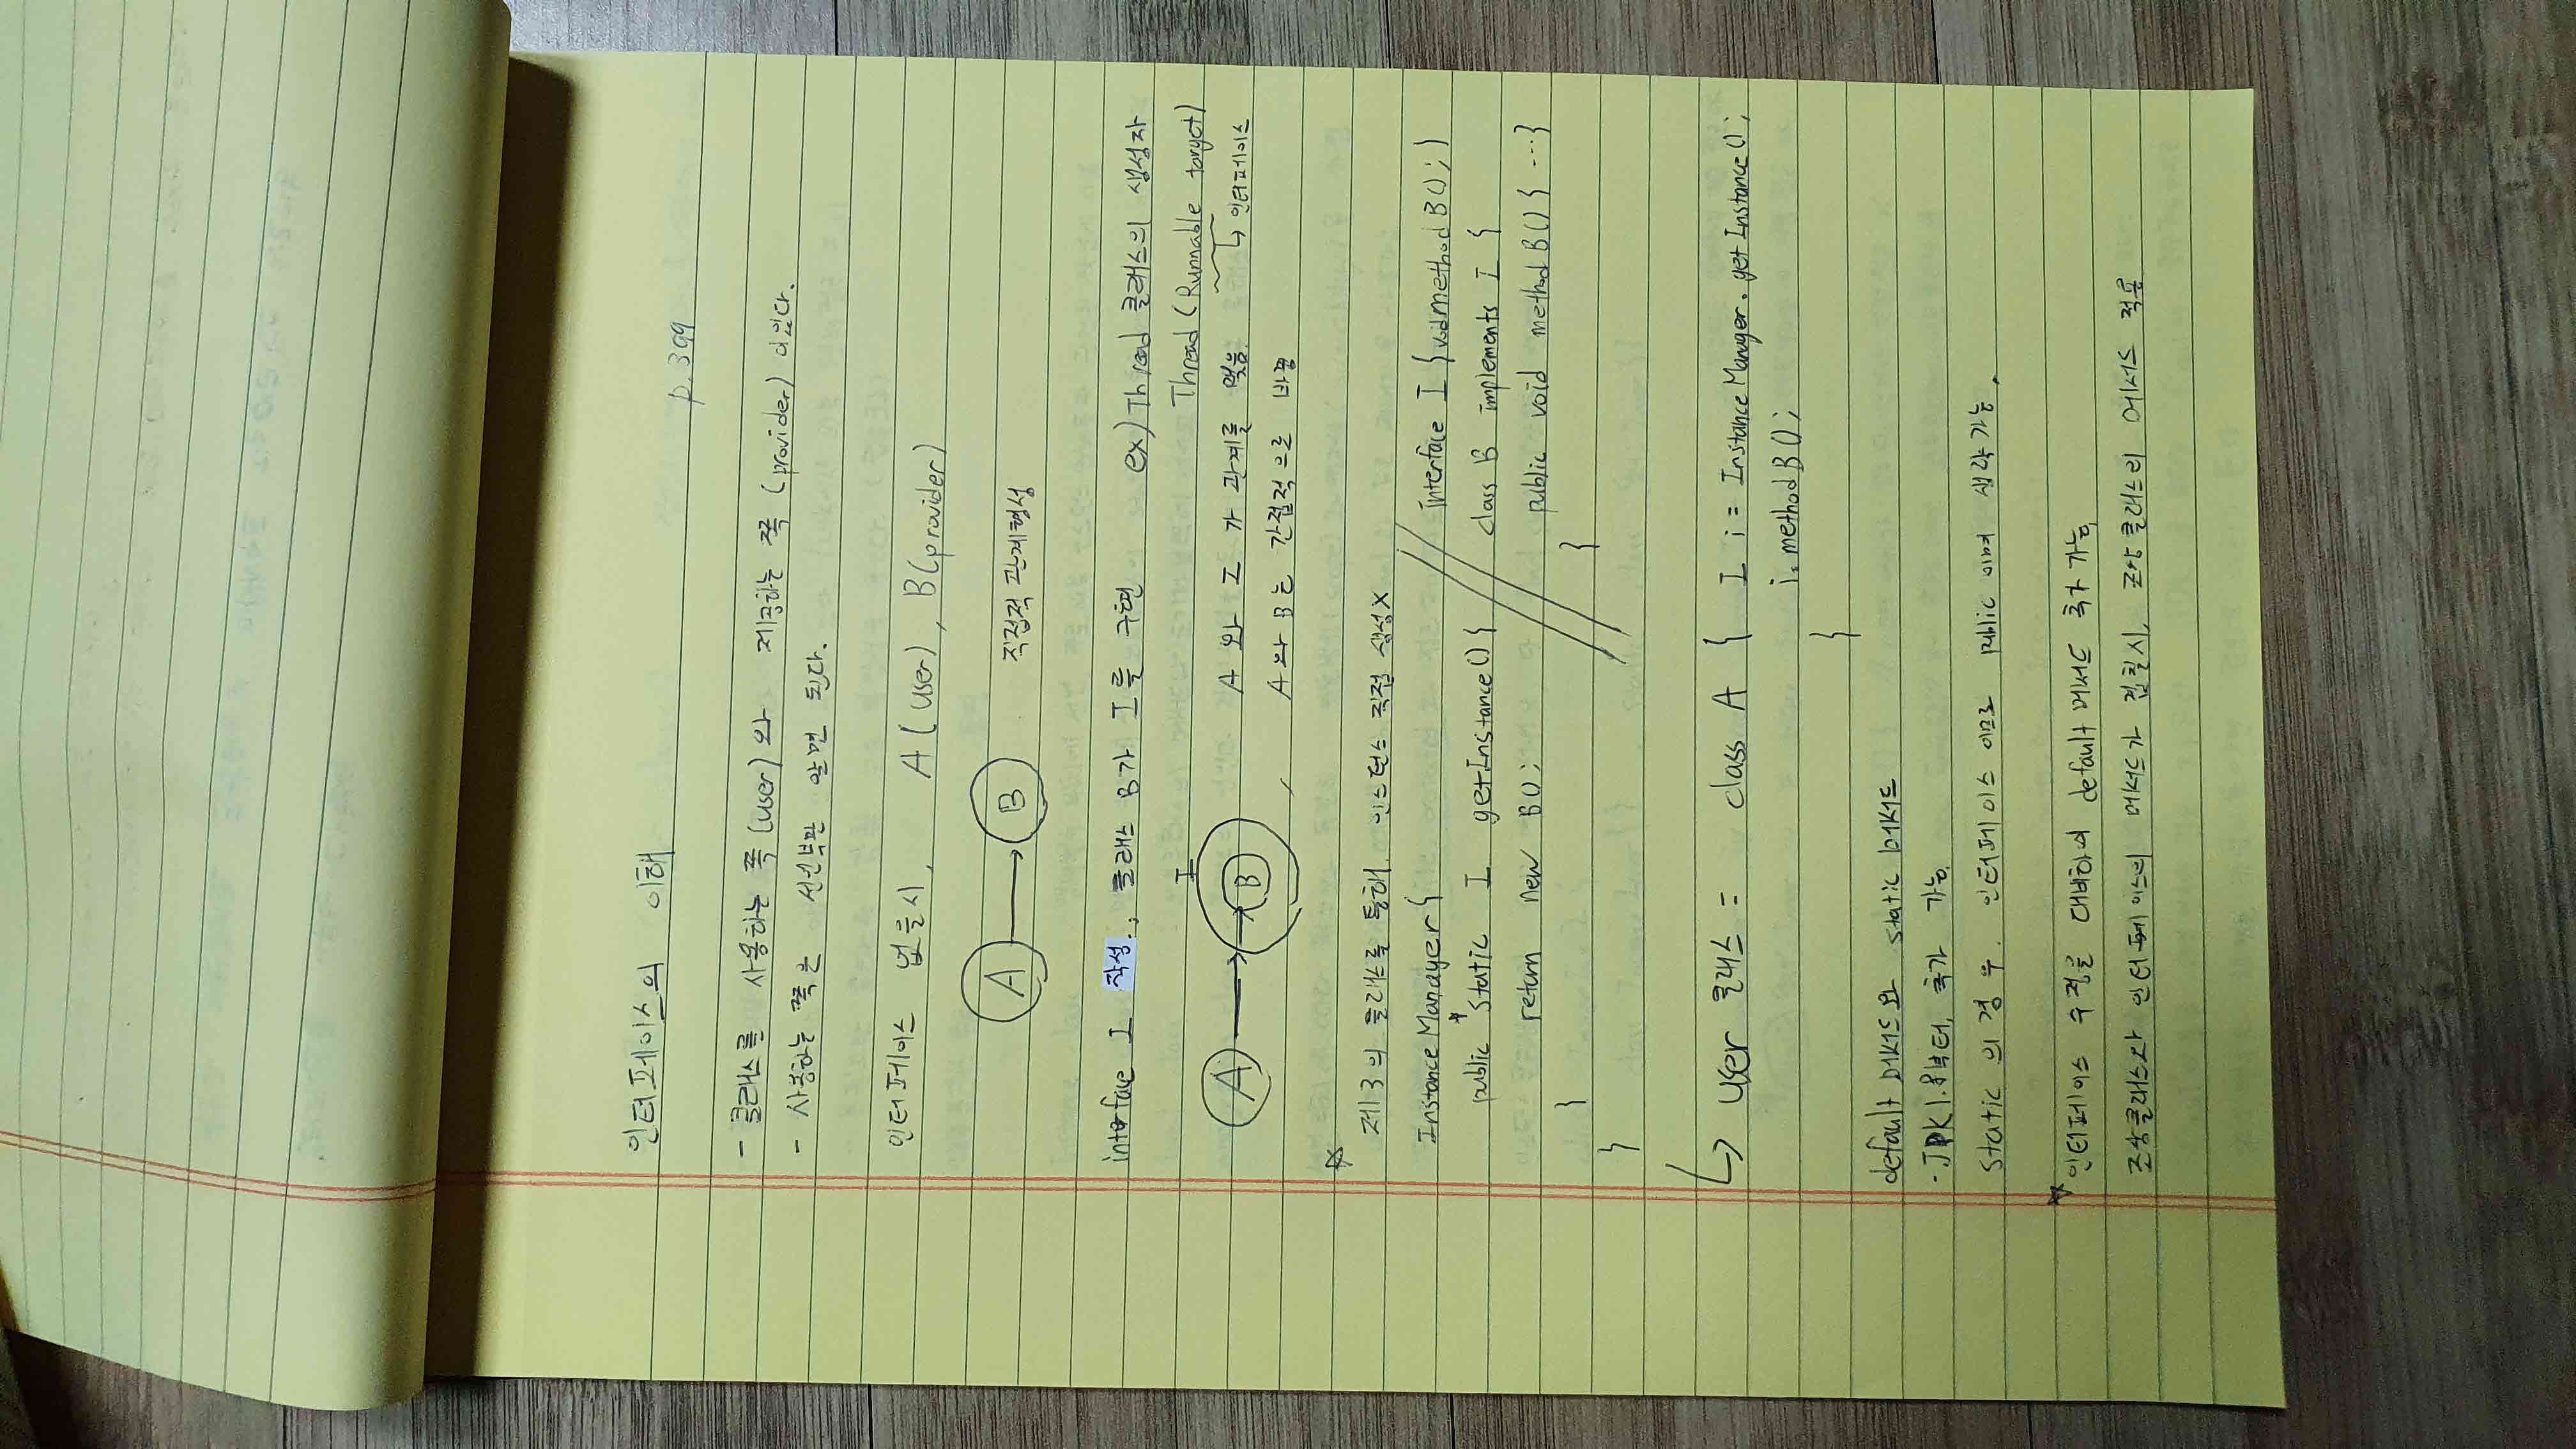 인터페이스의 이해
p.399
- 클래스를 사용하는 쪽(user)와 제공하는 쪽 (provider) 이있다.
- 사용하는 쪽은 선언부만 알면 된다.
인터페이스 없을시, A(user), B(provider)
A → B 직접적 관계형성
interface I 작성, 클래스 B가 I를 구현 ex) Thread 클래스의 생성자
Thread (Runnable target)
I
A → B A 와 I 가 관계를 맺음 ↳ 인터페이스
A와 B는 간접적으로 바뀜
☆
제3의 클래스를 통해. 인스턴스 직접 생성X
Instance Manager { // interface I {void methodB();}
public static I getInstance() { class B implements I {
return new B(); public void methodB() { ...}
} }
}
↳ user 클래스 = class A { I i = InstanceManager.getInstance();
i.methodB();
}
default 메서드와 static 메서드
- JDK1.8부터, 추가 가능.
static 의 경우. 인터페이스 이므로 public 이며 생략가능.
☆ 인터페이스 수정을 대비하여 default 메서드 추가 가능.
조상클래스와 인터페이스의 메서드가 겹칠시, 조상클래스의 메서드 적용